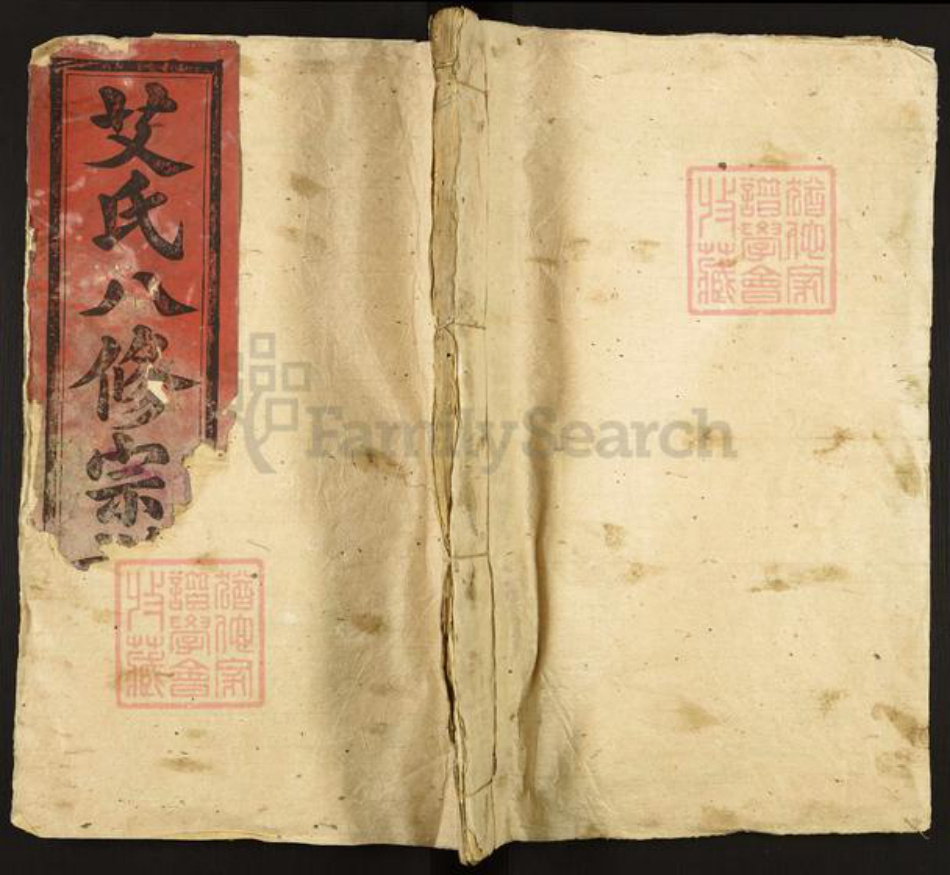 艾氏八修宗
猶他家
譜學會
收藏
FamilySearch
猶他家
譜學會
收藏